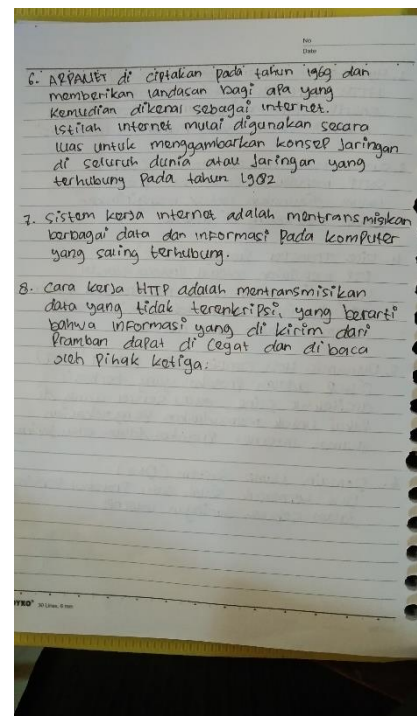 No
Date
6. ARPANET di ciptakan pada tahun 1969 dan
memberikan landasan bagi apa yang
kemudian dikenal sebagai internet.
istilah internet mulai digunakan secara
luas untuk menggambarkan konsep Jaringan
di seluruh dunia atau Jaringan yang
terhubung pada tahun 1982
7. Sistem kerja internet adalah mentransmisikan
berbagai data dan informasi pada komputer
yang saling terhubung.
8. Cara kerja HTTP adalah mentransmisikan
data yang tidak terenkripsi, yang berarti
bahwa informasi yang di kirim dari
Pramban dapat di cegat dan di baca
oleh pihak ketiga.
30 Lines, 6 mm